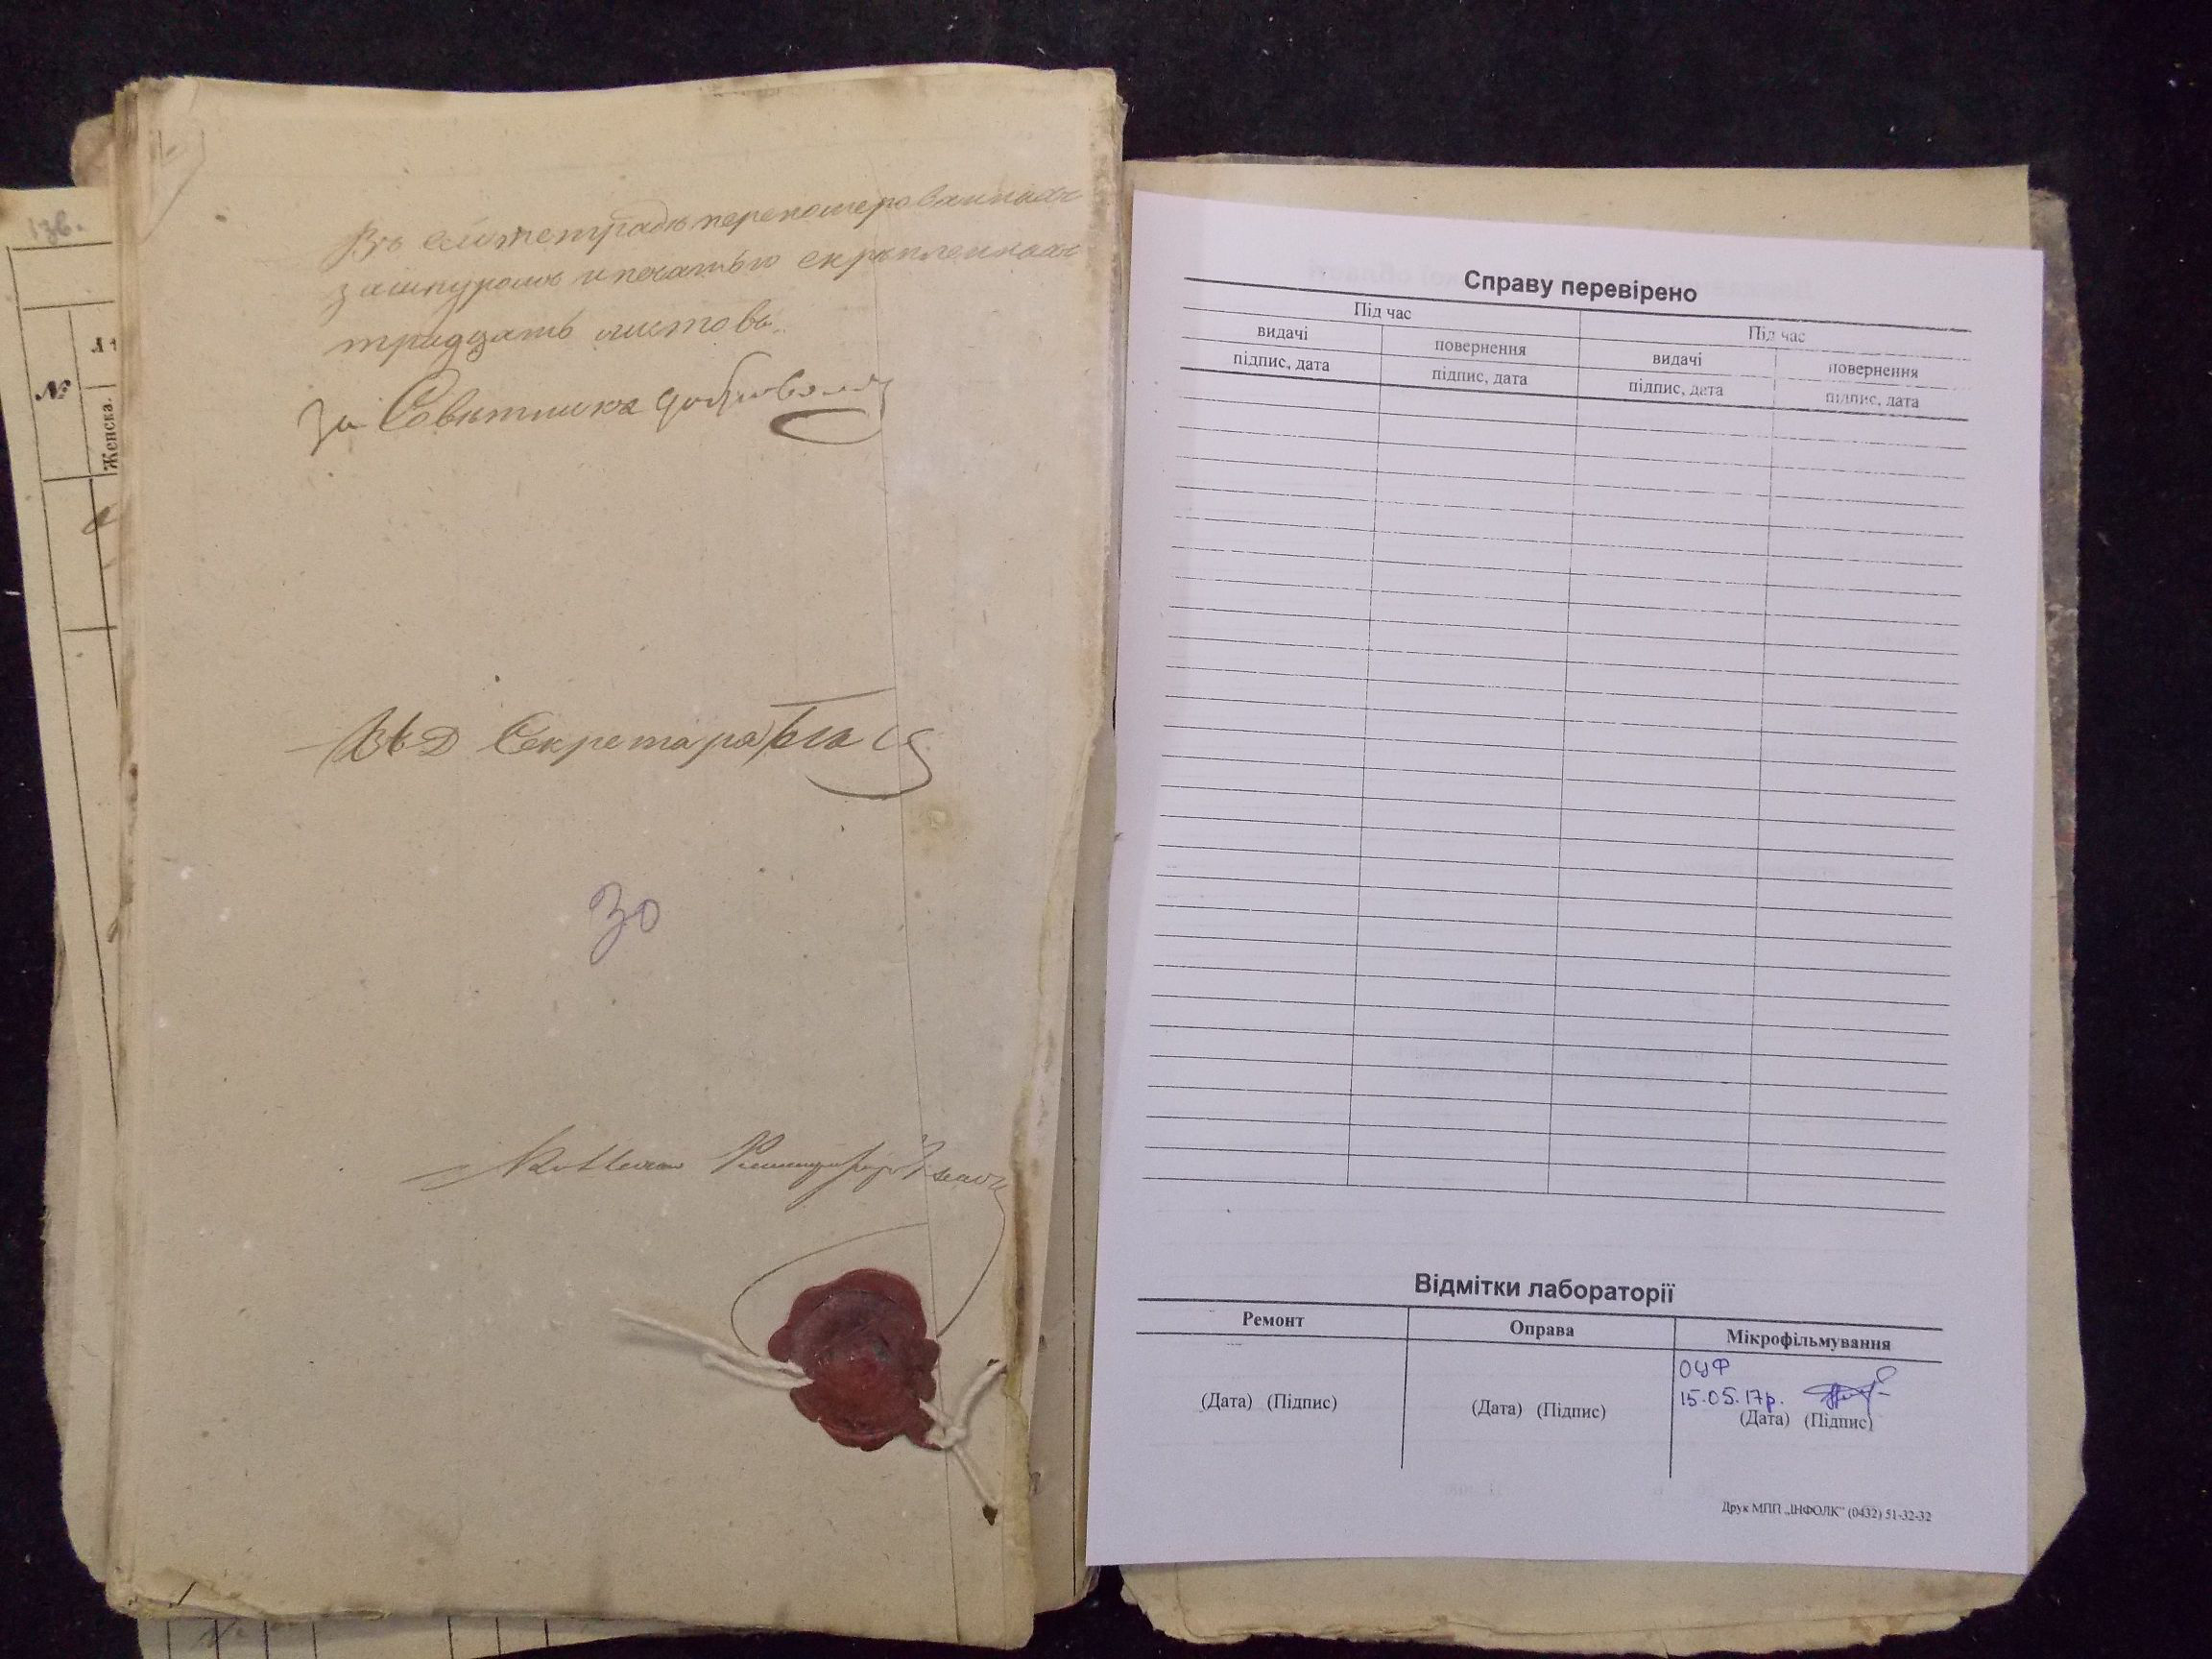 Въ сей тетрадь перенотерованныхъ
зашнуромъ и печатью скрѣпленныхъ
тридцать листовъ.
За Совѣтника
Секретаря
30
13б.
№
Женска.
Справу перевірено
Під час
Під час
видачі
повернення
видачі
повернення
підпис, дата
підпис, дата
підпис, дата
підпис, дата
Відмітки лабораторії
Ремонт
Оправа
Мікрофільмування
ОЦФ
15.05.17р.
(Дата) (Підпис)
(Дата) (Підпис)
(Дата) (Підпис)
Друк МПП „ІНФОЛК“ (0432) 51-32-32